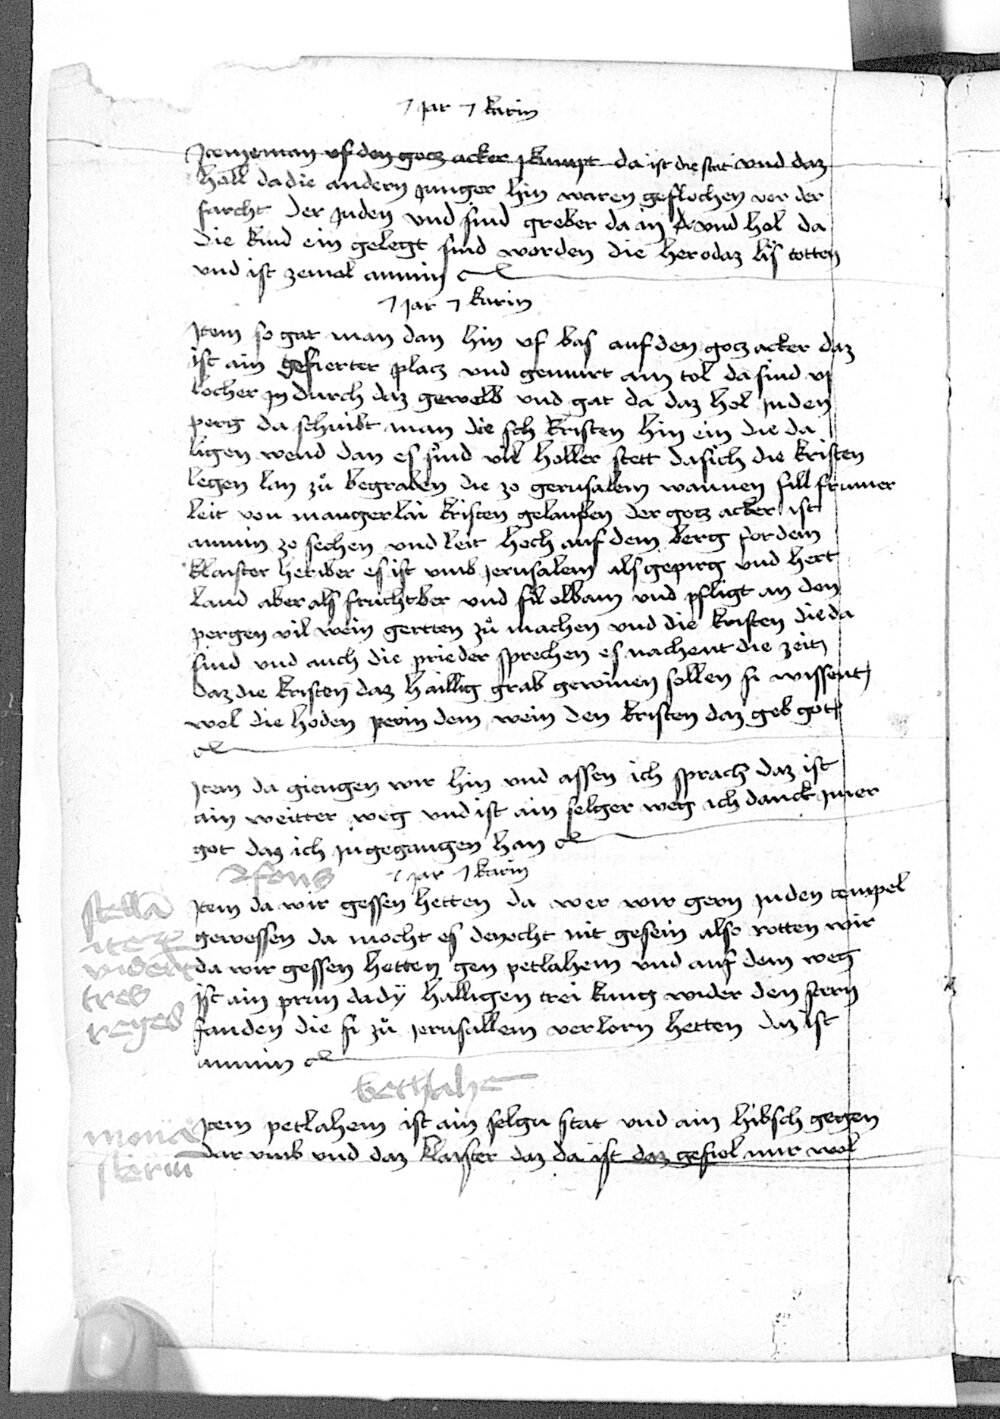 7 jar 7 karin
Item e man uf den gotz acker kumpt da ist die stat und daz
höll da die andern junger hin waren geflochen vor der
farcht der juden und sind greber da in und hol da
die kind ein gelegt sind worden die herodaz lis totten
und ist zemol
7 jar 7 karin
Item so gat man dan hin uf bas auf den gotz acker daz
ist ain gefierter placz und gemurt ain tol da sind vi
locher in durch daz gewelb und gat da daz hol in den
perg da schuibt man die sch kristen hin ein die da
ligen wend dan es sind vil holler stett da sich die kristen
legen lan zů begraben die zo gerusalem wannen fill frumer
leit von mangerlai kristen gelauben der gotz acker ist
zo sechen und leit hoch auf dem berg for dem
klaister heriber es ist umb jerusalem als gepirg und hert
land aber als fruchtber und fil olbam und pfligt an den
pergen vil wein gertten zů machen und die kristen die da
sind und auch die prieder sprechen es nachent die zeit
daz die kristen daz haillig grab gewinen sollen si wissent
wol die hoden perin dem wein den kristen daz geb got
Item da giengen wir hin und assen ich sprach daz ist
ain weitter weg und ist ain selger weg ich danck imer
got daz ich in gegangen han
fons 7 jar 7 karin
Item da wir gessen hetten da wer wir gern in den tempel
gewessen da mocht es denocht nit gesein also rotten wir
da wir gessen hetten gen petlahem und auf dem weg
ist ain prun da dÿ halligen trei kung wider den stern
fanden die si zů jerusallem verlorn hetten daz ist
stella
iterum
viderunt
tres
reges
bethlahe
Item petlahem ist ain selgu stat und ain hibsch gegen
dar umb und daz klaister daz da ist daz gefiol mir wol
mona
sterium